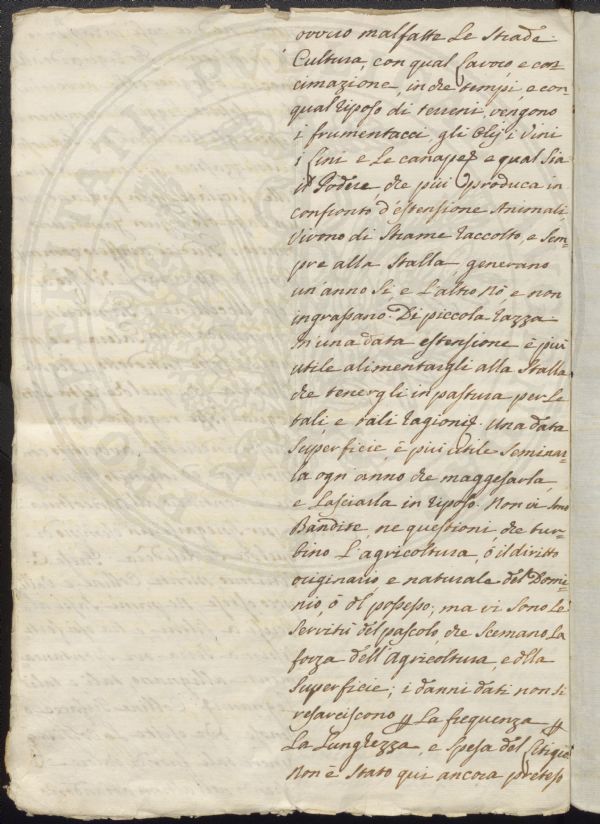 ovvero malfatte Le Strade.
Cultura, con qual Lavoro, e con
cimazione, in che tempi, e con
qual riposo di terreni, vengono
i frumentacci gli Olij i Vini
i Lini e Le canape, e qual Sia
il Podere, che più produca in
confronto d'estensione Animali
Vivono di Strame raccolto, e Sem=
pre alla Stalla, generano
un'anno Sì, e L'altro Nò e non
ingrassano. Di piccola razza
In una data estensione è più
utile alimentargli alla Stalla
che tenergli in pastura per Le
tali, e tali ragioni. Una data
Superficie, è più utile Seminar=
la ogn'anno che maggesarla,
e Lasciarla in riposo. Non vi sono
Bandite, ne questioni, che tur=
bino L'agricoltura, ò il diritto
originario e naturale del Domi=
nio, ò dl possesso; ma vi Sono Le
Servitù del pascolo, che Scemano La
forza dell'Agricoltura, e dlla
Superficie; i danni dati non Si
resarciscono p La frequenza p
La Lunghezza e Spesa del Litigio
Non è Stato qui ancora preteso